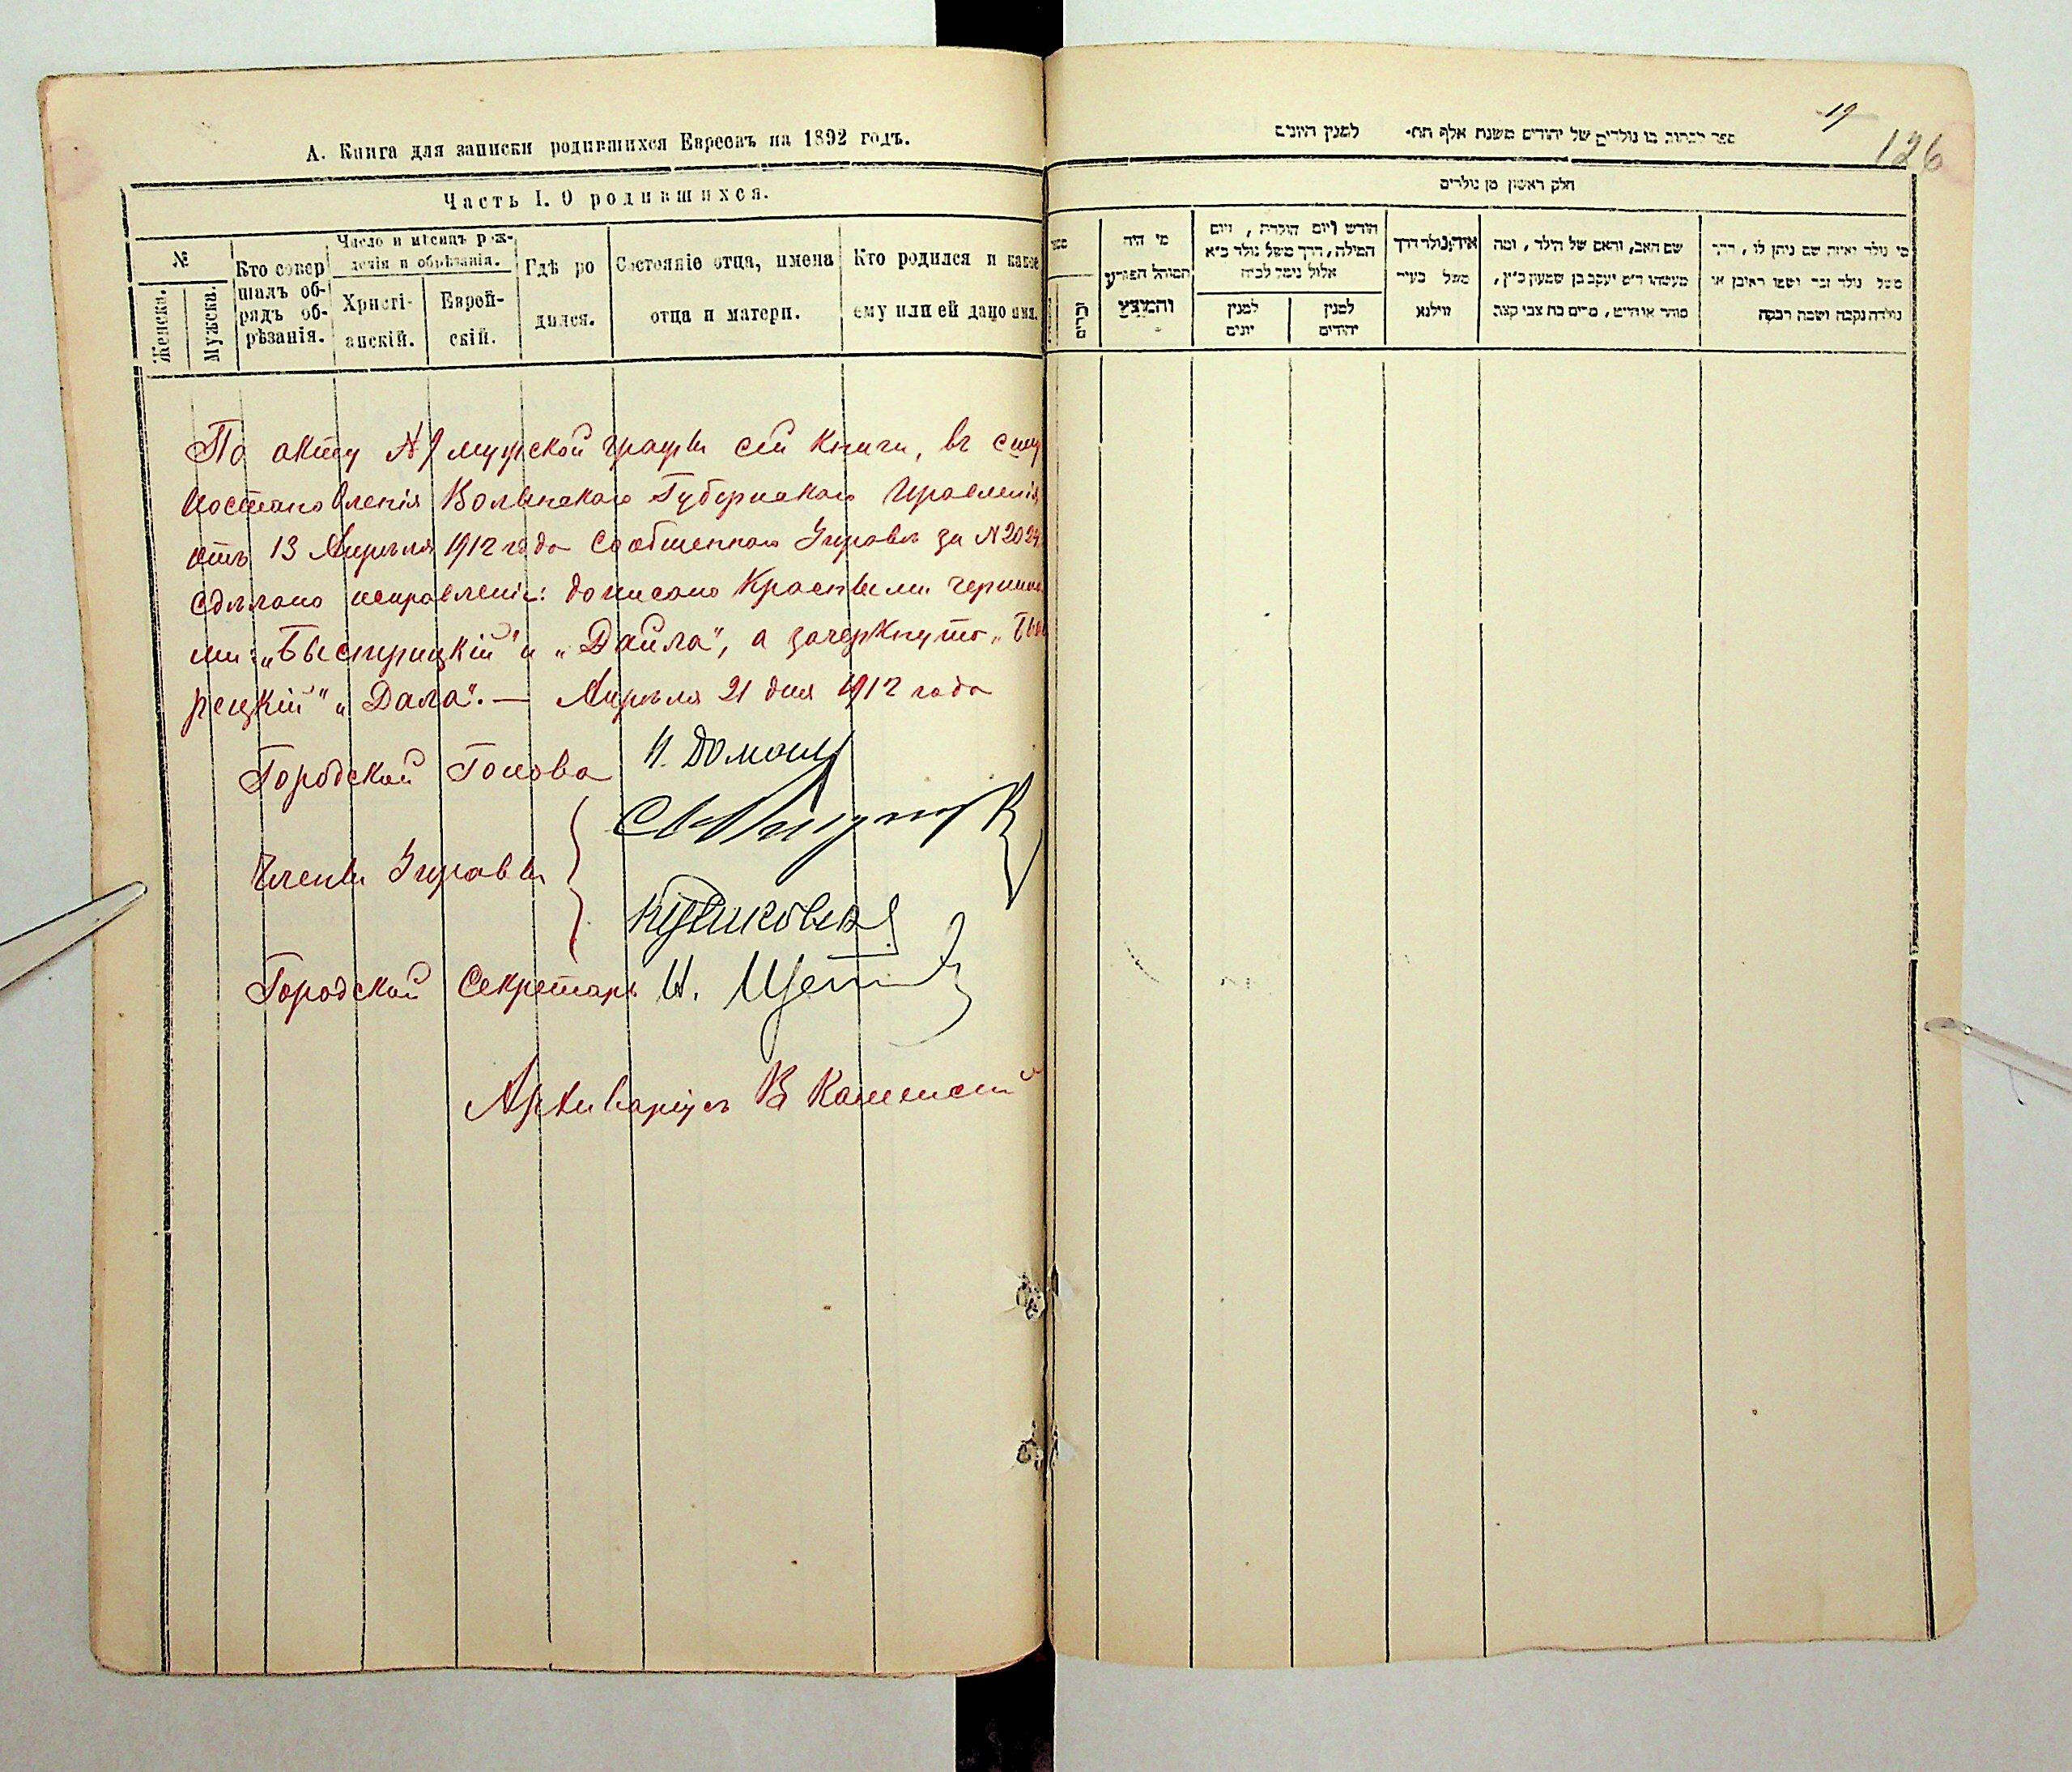 А. Книга для записки родившихся Евреевъ на 1892 годъ.
Часть I. О родившихся.
№
Женска.
Мужска.
Кто совер
шалъ об-
рядъ об-
рѣзанія.
Число и мѣсяцъ рож-
денія и обрѣзанія.
Христі-
анскій.
Еврей-
скій.
Гдѣ ро
дился.
Состояніе отца, имена
отца и матери.
Кто родился и какое
ему или ей дано имя.
По акту № мужской графы сей книги, въ силу
постановленія Волынскаго Губернскаго Правленія
отъ 13 Апрѣля 1912 года сообщеннаго Управѣ за N 2024
сдѣлано исправленіе: дописано красными чернила
ми: „Быстрицкій" и „Дайла", а зачеркнуто „Быст
рецкій" „Дала". — Апрѣля 21 дня 1912 года
Городской Голова
Члены Управы
Городской Секретарь И.
Архиваріусъ В Каменскій
19
126
ספר לכתוב בו נולדים של יהודים משנת אלף תת׳ למנין היונים
חלק ראשון מן נולדים
זכרים
מי היה
המוהל הפורע
והמוצץ
חודש ויום הולדת, ויום
המילה, דרך משל נולד כ״א
אלול נימל לכ״ח
למנין
יונים
למנין
יהודים
איה נולד דרך
משל בעיר
ווילנא
שם האב, והאם של הילד, ומה
מעשהו ד״מ יעקב בן שמעון כ״ץ,
סוחר או חייט, מרים בת צבי קצב
מי נולד ואיזה שם ניתן לו, דרך
משל נולד זכר ושמו ראובן או
נולדה נקבה ושמה רבקה